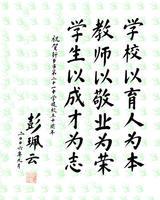 学校以育人为本
教师以敬业为荣
学生以成才为志
祝贺市第二十一中学建校五十周年
彭珮云
二〇〇六年九月